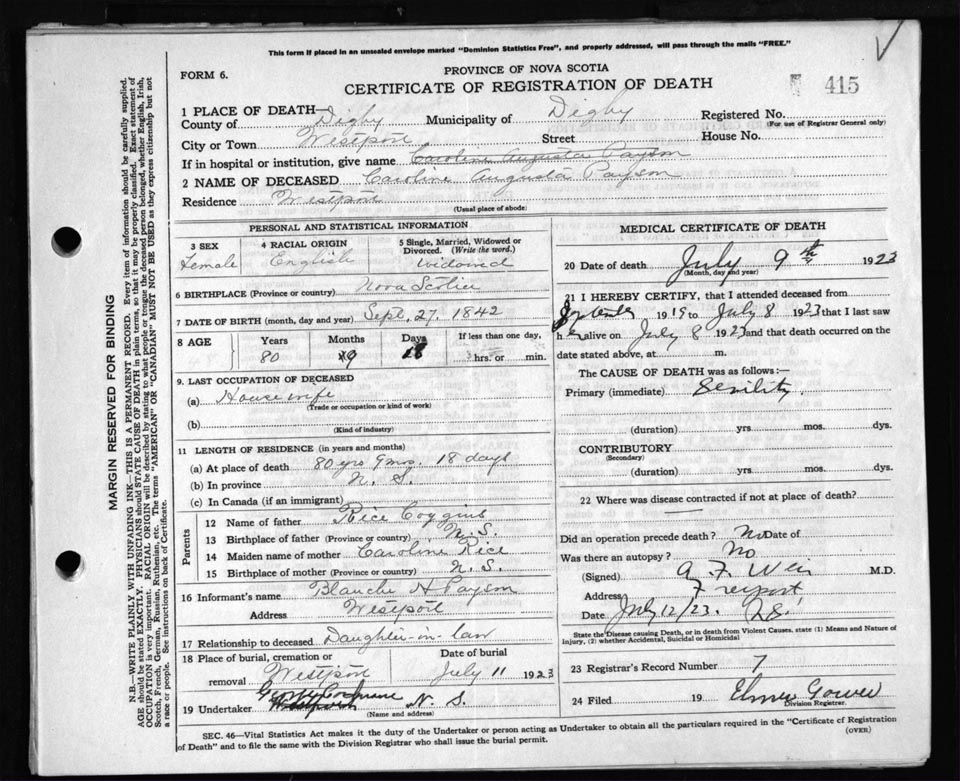 This form if placed in an unsealed envelope marked "Dominion Statistics Free", and properly addressed, will pass through the mails "FREE."
FORM 6.
PROVINCE OF NOVA SCOTIA
CERTIFICATE OF REGISTRATION OF DEATH
415
1 PLACE OF DEATH—
County of Digby Municipality of Digby Registered No.
(For use of Registrar General only)
City or Town Westport Street House No.
If in hospital or institution, give name Caroline Augusta Payson
2 NAME OF DECEASED Caroline Augusta Payson
Residence Westport
(Usual place of abode)
PERSONAL AND STATISTICAL INFORMATION
3 SEX
Female
4 RACIAL ORIGIN
English
5 Single, Married, Widowed or Divorced. (Write the word.)
Widowed
6 BIRTHPLACE (Province or country) Nova Scotia
7 DATE OF BIRTH (month, day and year) Sept. 27. 1842
8 AGE Years Months Days If less than one day,
80 9 18 hrs. or min.
9. LAST OCCUPATION OF DECEASED
(a) Housewife
(Trade or occupation or kind of work)
(b)
(Kind of industry)
11 LENGTH OF RESIDENCE (in years and months)
(a) At place of death 80 yrs 9 mos. 18 days
(b) In province N. S.
(c) In Canada (if an immigrant)
Parents
12 Name of father Rice Coggins
13 Birthplace of father (Province or country) N. S.
14 Maiden name of mother Caroline Rice
15 Birthplace of mother (Province or country) N. S.
16 Informant's name Blanche H Payson
Address Westport
17 Relationship to deceased Daughter-in-law
18 Place of burial, cremation or removal Westport
Date of burial
July 11 1923
19 Undertaker N. S.
(Name and address)
MEDICAL CERTIFICATE OF DEATH
20 Date of death July 9th 1923
(Month, day and year)
21 I HEREBY CERTIFY, that I attended deceased from
1919 to July 8 1923 that I last saw
her alive on July 8 1923 and that death occurred on the
date stated above, at m.
The CAUSE OF DEATH was as follows:—
Primary (immediate) Senility.
(duration) yrs. mos. dys.
CONTRIBUTORY
(Secondary)
(duration) yrs. mos. dys.
22 Where was disease contracted if not at place of death?
Did an operation precede death? No Date of
Was there an autopsy? No
(Signed) M.D.
Address Freeport
Date July 12/23.
State the Disease causing Death, or in death from Violent Causes, state (1) Means and Nature of Injury, (2) whether Accidental, Suicidal or Homicidal
23 Registrar's Record Number 7
24 Filed 19 Elmer Gower
Division Registrar.
SEC. 46—Vital Statistics Act makes it the duty of the Undertaker or person acting as Undertaker to obtain all the particulars required in the "Certificate of Registration
of Death" and to file the same with the Division Registrar who shall issue the burial permit.
(OVER)
MARGIN RESERVED FOR BINDING
N.B.—WRITE PLAINLY WITH UNFADING INK—THIS IS A PERMANENT RECORD. Every item of information should be carefully supplied.
AGE should be stated EXACTLY. PHYSICIANS should STATE CAUSE OF DEATH in plain terms, so that it may be properly classified. Exact statement of
OCCUPATION is very important. RACIAL ORIGIN will be described by stating to what people or tongue the deceased person belonged, whether English, Irish,
Scotch, French, German, Russian, Ruthenian, etc. The terms "AMERICAN" OR "CANADIAN" MUST NOT BE USED as they express citizenship but not
a race or people. See instructions on back of Certificate.